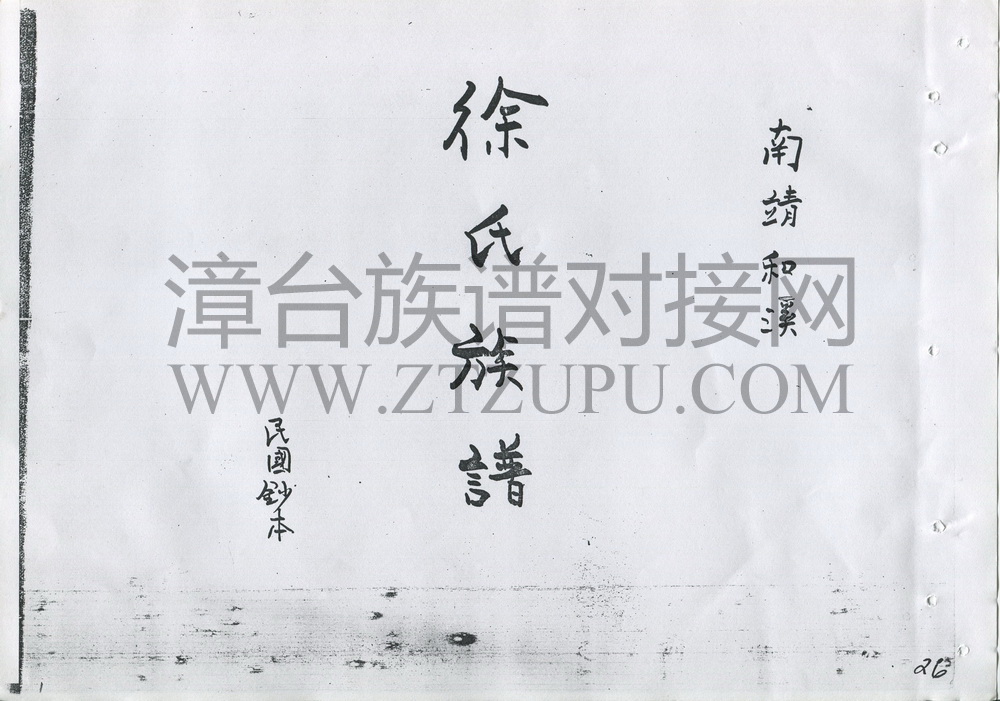 南靖和溪
徐氏族譜
民國鈔本
漳台族谱对接网
WWW.ZTZUPU.COM